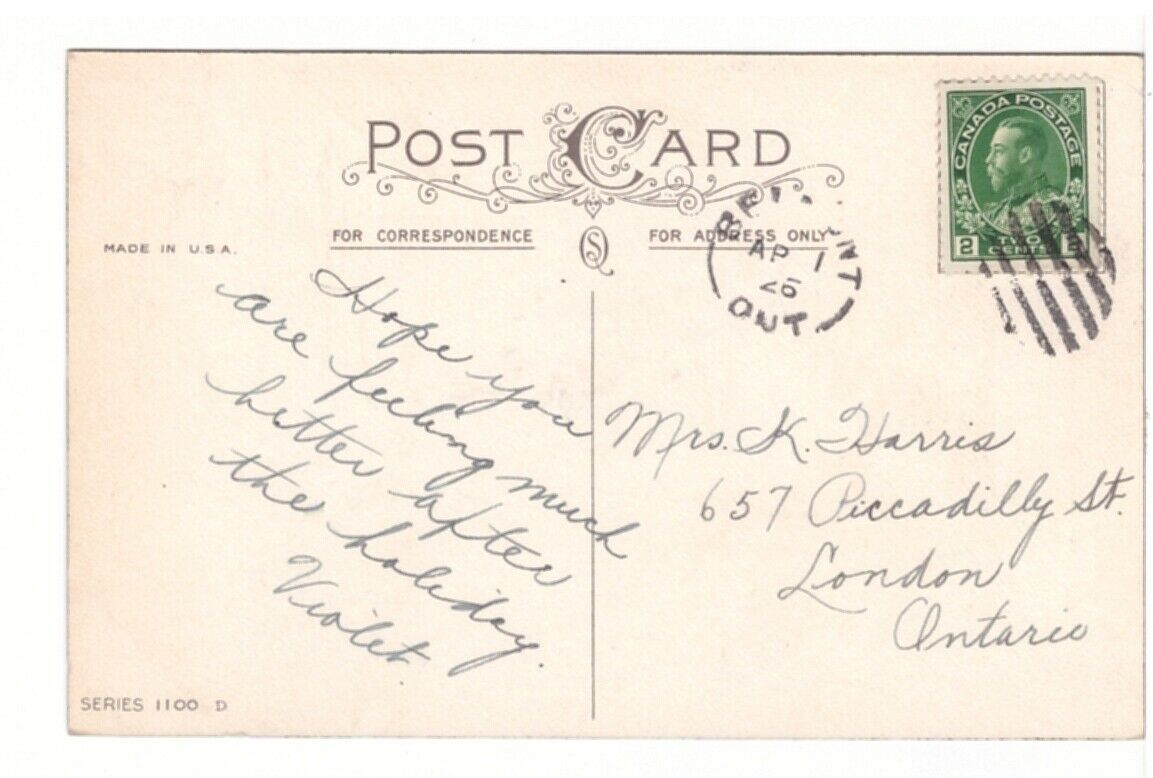 POST CARD
CANADA POSTAGE
2 TWO 2
MADE IN U.S.A.
FOR CORRESPONDENCE
S
FOR ADDRESS ONLY
AP 1
26
ONT.
Hope you
are feeling much
better after
the holiday.
Violet.
Mrs. K. Harris
657 Piccadilly St.
London
Ontario
SERIES 1100 D